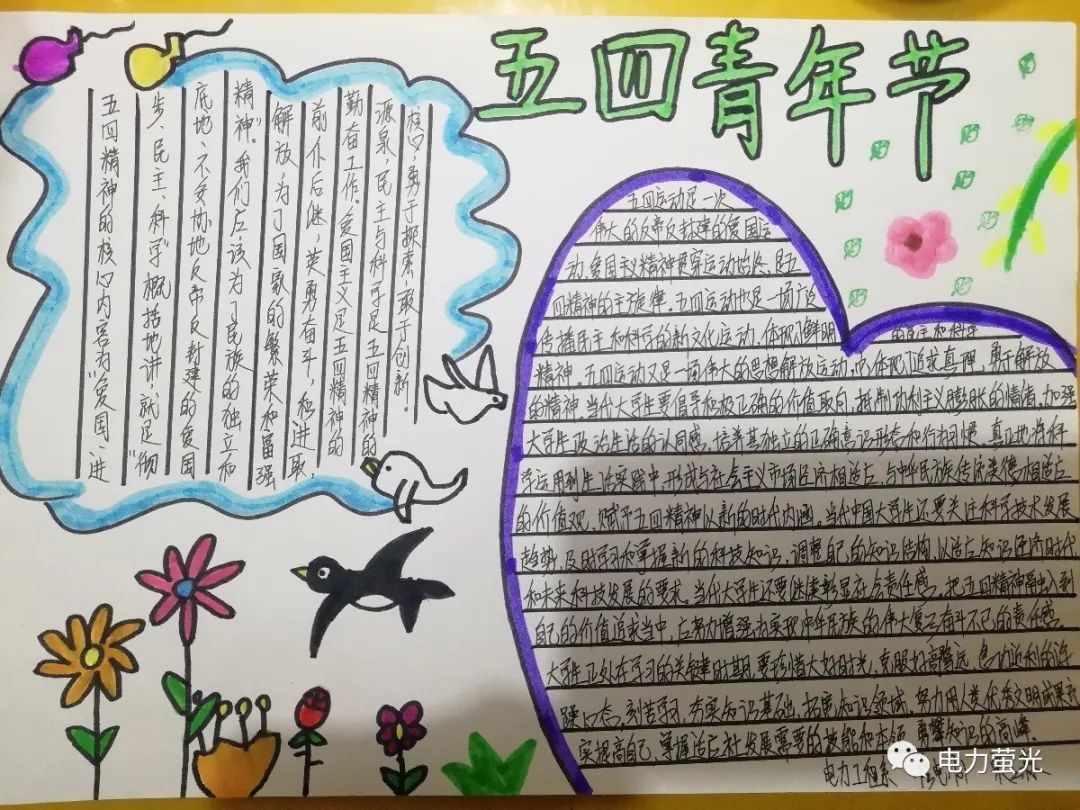 五四青年节
五四精神的核心内容为“爱国、进
步、民主、科学”概括地讲就是“彻
底地、不妥协地反帝反封建的爱国
精神”。我们应该为了民族的独立和
解放,为了国家的繁荣和富强
前仆后继,英勇奋斗,和进取,
勤奋工作。爱国主义是五四精神的
源泉,民主与科学是五四精神的
核心,勇于探索、敢于创新。
五四运动是一次
伟大的反帝反封建的爱国运
动,爱国主义精神贯穿运动始终,是五
四精神的主旋律。五四运动也是一场广泛
传播民主和科学的新文化运动,体现了鲜明的民主和科学
精神。五四运动又是一场伟大的思想解放运动,它体现了追求真理,勇于解放
的精神。当代大学生要倡导积极正确的价值取向,抵制功利主义膨胀的情绪,加强
大学生政治生活的认同感,培养其独立的正确意识形态和行为习惯,真正地将科
学运用到生活实践中,形成与社会主义市场经济相适应,与中华民族传统美德相适应
的价值观,赋予五四精神以新的时代内涵。当代中国大学生还要关注科学技术发展
趋势,及时学习和掌握新的科技知识,调整自己的知识结构,以适应知识经济时代
和未来科技发展的要求。当代大学生还要继续彰显社会责任感。把五四精神融入到
自己的价值追求当中,应努力增强为实现中华民族的伟大复兴奋斗不已的责任感。
大学生正处在学习的关键时期,要珍惜大好时光,克服好高骛远,急功近利的浮
躁心态。刻苦学习,夯实知识基础,拓展知识领域,努力用人类优秀文明成果充
实提高自己,掌握适应社发展需要的技能和本领,勇攀知识的高峰。
电力工程系
电力萤光